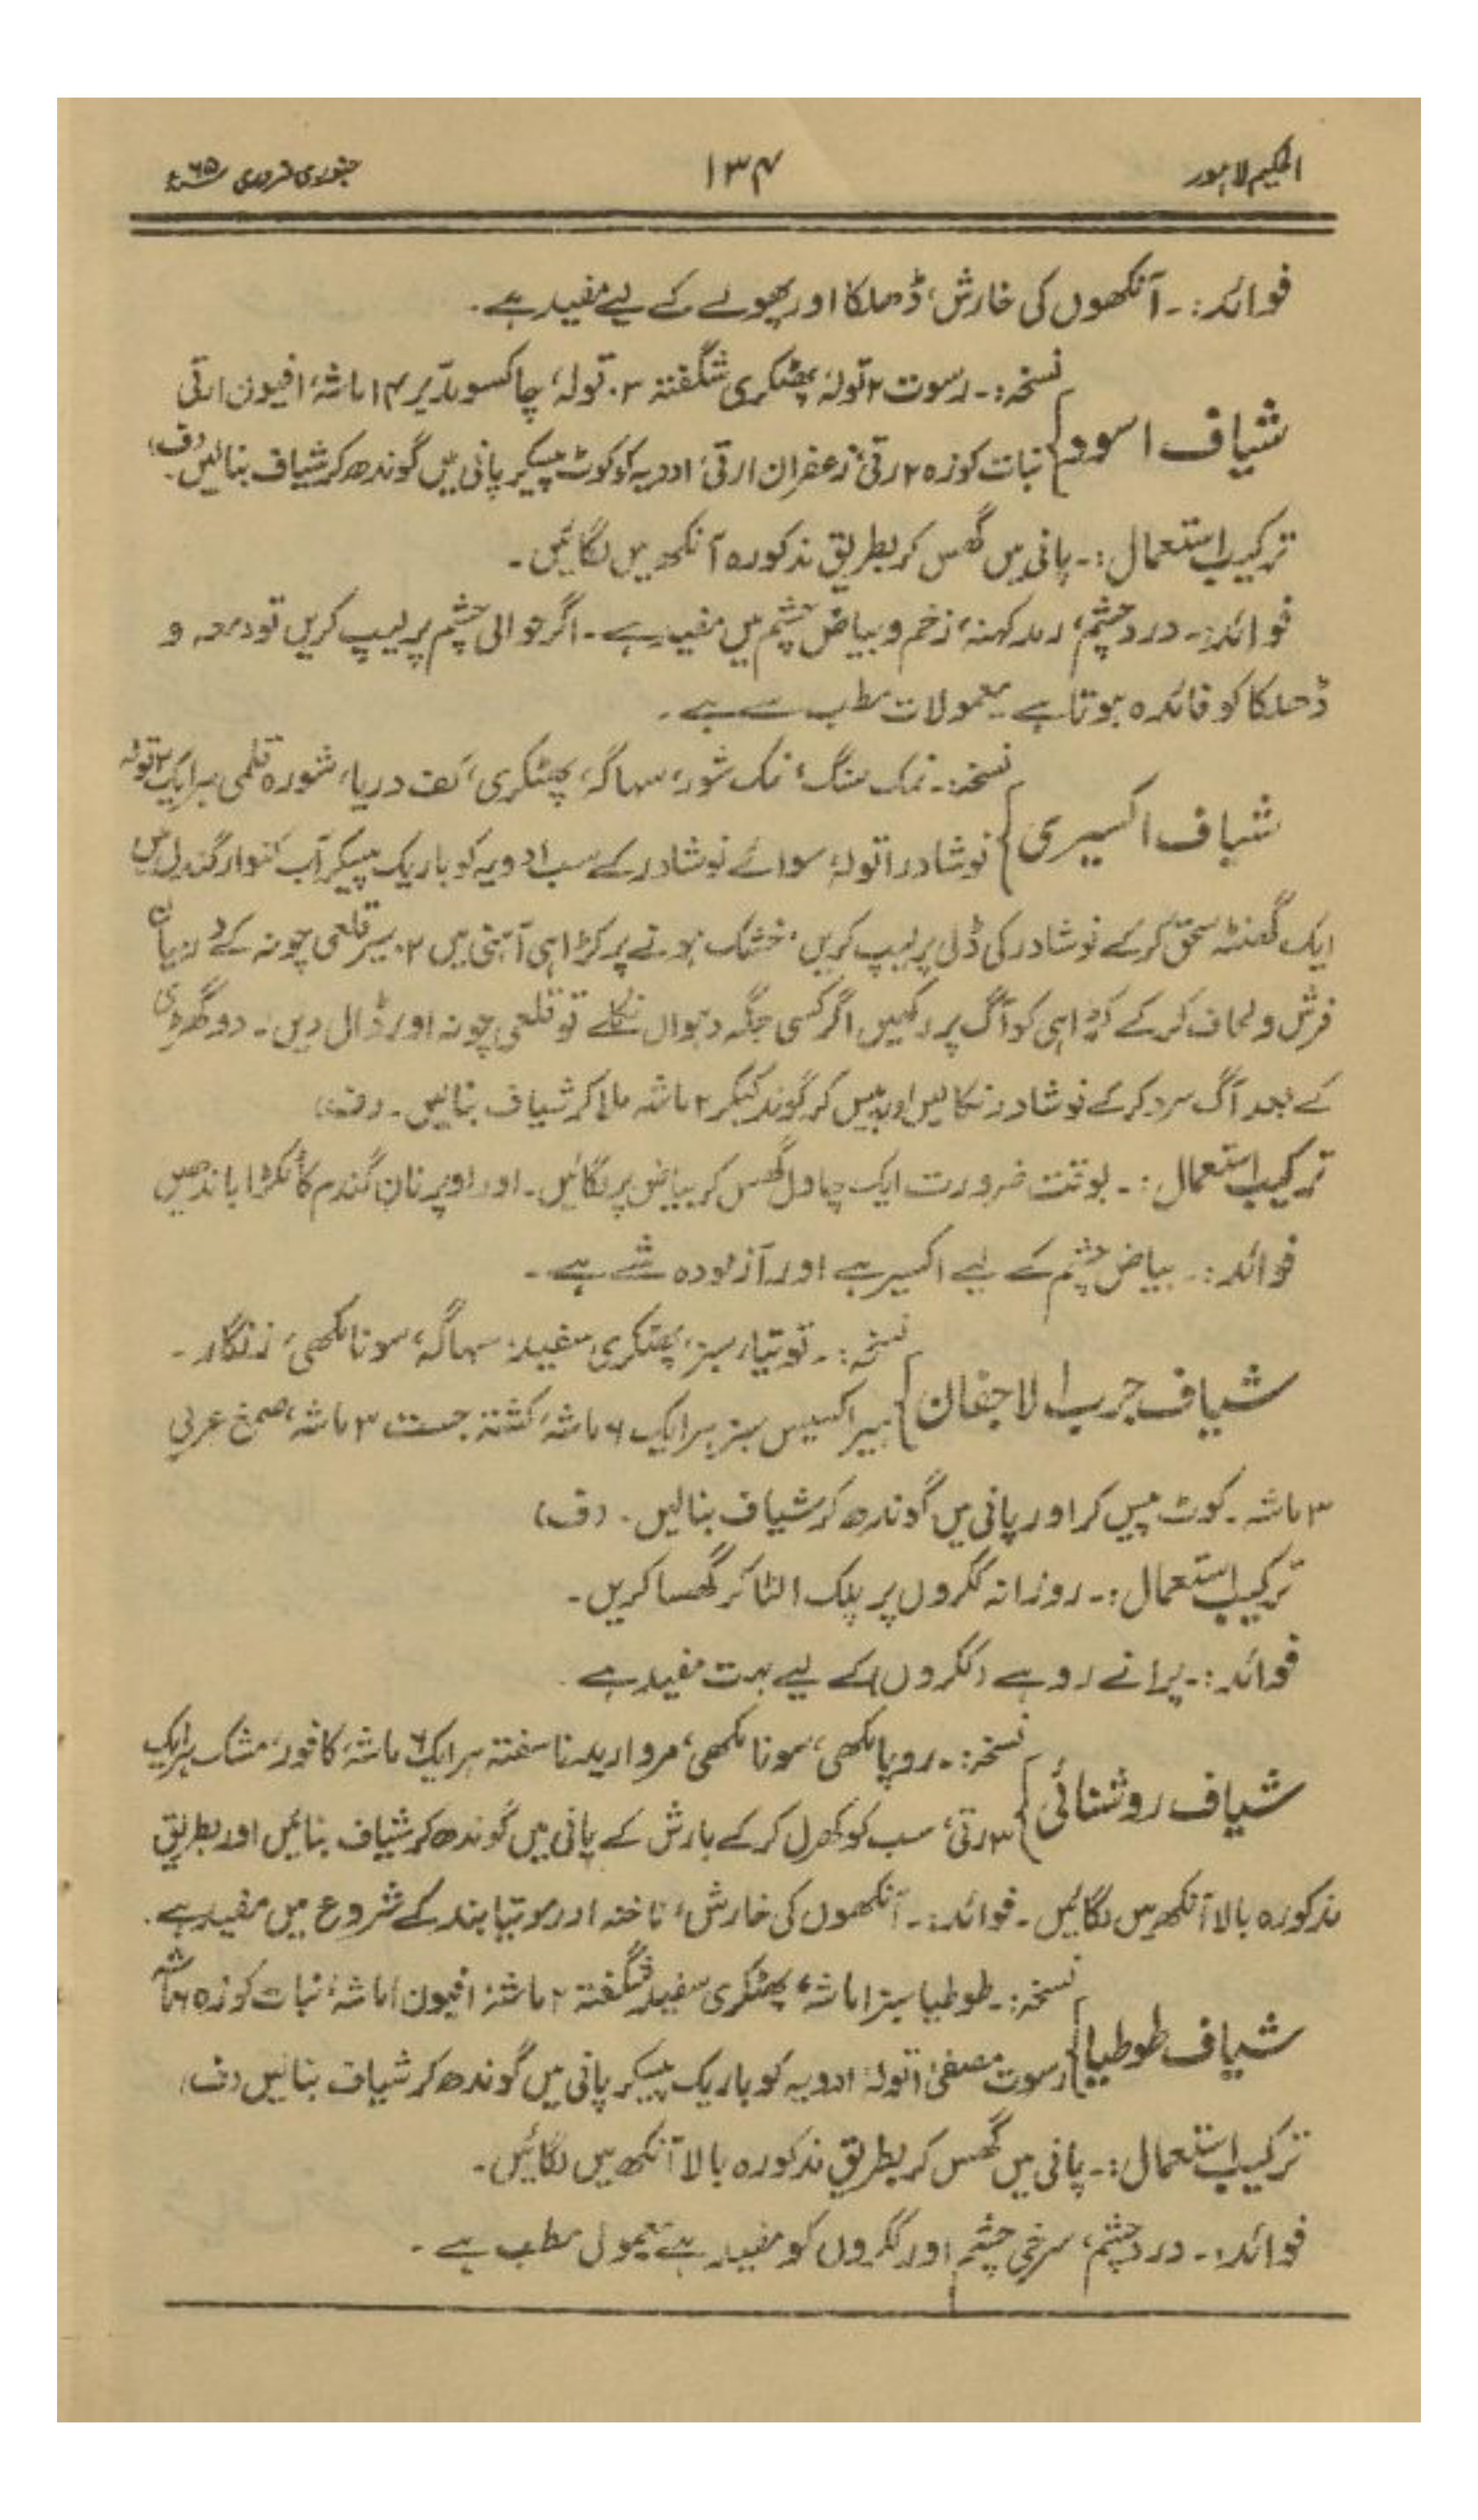 الحکیم لاہور
۱۳۴
جنوری فروری ۶۵ء
فوائد:۔ آنکھوں کی خارش، ڈھلکا اور پھولے کے لیے مفید ہے۔
شیاف اسود
نسخہ:۔ رسوت ۲ تولہ، پھٹکری شگفتہ ۲ تولہ، چاکسو مدبر ۱۴ ماشہ، افیون ۱ رتی
نبات کوزہ ۲ رتی، زعفران ۱ رتی، ادویہ کو کوٹ پیسکر پانی میں گوندھ کر شیاف بنالیں۔ (ف)
ترکیب استعمال:۔ پانی میں گھس کر بطریق مذکورہ آنکھ میں لگائیں۔
فوائد:۔ درد چشم، رمد کہنہ، زخم و بیاض چشم میں مفید ہے۔ اگر حوالی چشم پر لیپ کریں تو دمعہ و
ڈھلکا کو فائدہ ہوتا ہے۔ معمولات مطب سے ہے۔
شیاف اکسیری
نسخہ:۔ نمک سنگ، نمک شور، سہاگہ، پھٹکری، کف دریا، شورہ قلمی ہر ایک ۲ تولہ
نوشادر ۱ تولہ، سوائے نوشادر کے سب ادویہ کو باریک پیسکر آب کنوار گندل میں
ایک گھنٹہ سحق کرکے نوشادر کی ڈلی پر لیپ کریں، خشک ہونے پر کڑاہی آہنی میں ۲ سیر قلعی چونہ کے درمیان
فرش و لحاف کرکے کڑاہی کو آگ پر رکھیں اگر کسی جگہ دہواں نکلے تو قلعی چونہ اور ڈال دیں۔ دو گھڑی
کے بعد آگ سرد کرکے نوشادر نکالیں اور پیس کر گوند کیکر ۲ ماشہ ملا کر شیاف بنائیں۔ (ف)
ترکیب استعمال:۔ بوقت ضرورت ایک چاول گھس کر بیاض پر لگائیں۔ اور اوپر نان گندم کا ٹکڑا باندھیں
فوائد:۔ بیاض چشم کے لیے اکسیر ہے اور آزمودہ شے ہے۔
شیاف جرب الاجفان
نسخہ:۔ توتیا سبز، پھٹکری سفید، سہاگہ، سونا مکھی، زنگار۔
ہیرا کسیس سبز ہر ایک ۶ ماشہ، کشتہ جست ۳ ماشہ، صمغ عربی
۳ ماشہ۔ کوٹ پیس کر اور پانی میں گوندھ کر شیاف بنالیں۔ (ف)
ترکیب استعمال:۔ روزانہ ککروں پر پلک الٹا کر گھسا کریں۔
فوائد:۔ پرانے روہے (ککروں) کے لیے بہت مفید ہے
شیاف روشنائی
نسخہ:۔ روپا مکھی، سونا مکھی، مروارید ناسفتہ ہر ایک ۶ ماشہ، کافور، مشک ہر ایک
۳ رتی، سب کو کھرل کرکے بارش کے پانی میں گوندھ کر شیاف بنائیں اور بطریق
مذکورہ بالا آنکھ میں لگائیں۔ فوائد:۔ آنکھوں کی خارش، ناخنہ اور موتیا بند کے شروع میں مفید ہے۔
شیاف طوطیا
نسخہ:۔ طوطیا سبز ۱ ماشہ، پھٹکری سفید شگفتہ ۲ ماشہ، افیون ۱ ماشہ، نبات کوزہ ۶ ماشہ
رسوت مصفیٰ ۱ تولہ، ادویہ کو باریک پیسکر پانی میں گوندھ کر شیاف بنالیں (ف)
ترکیب استعمال:۔ پانی میں گھس کر بطریق مذکورہ بالا آنکھ میں لگائیں۔
فوائد:۔ درد چشم، سرخی چشم اور ککروں کو مفید ہے معمول مطب ہے۔